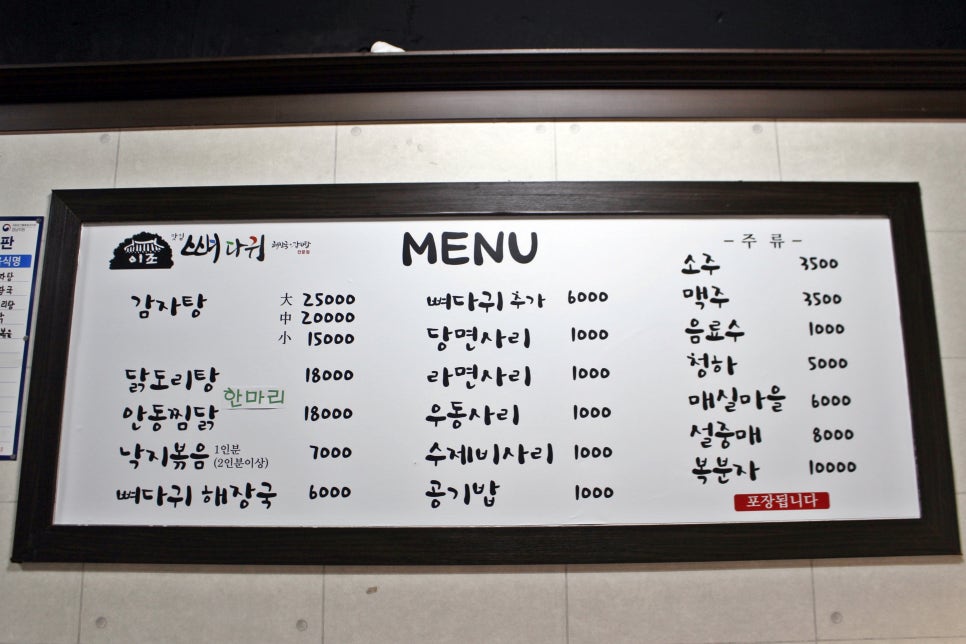 이조
맛집
뼈다귀
MENU
감자탕 大 25000
中 20000
小 15000
닭도리탕 18000
한마리
안동찜닭 18000
낙지볶음 1인분 (2인분이상) 7000
뼈다귀 해장국 6000
뼈다귀 추가 6000
당면사리 1000
라면사리 1000
우동사리 1000
수제비사리 1000
공기밥 1000
- 주 류 -
소주 3500
맥주 3500
음료수 1000
청하 5000
매실마을 6000
설중매 8000
복분자 10000
포장됩니다
판